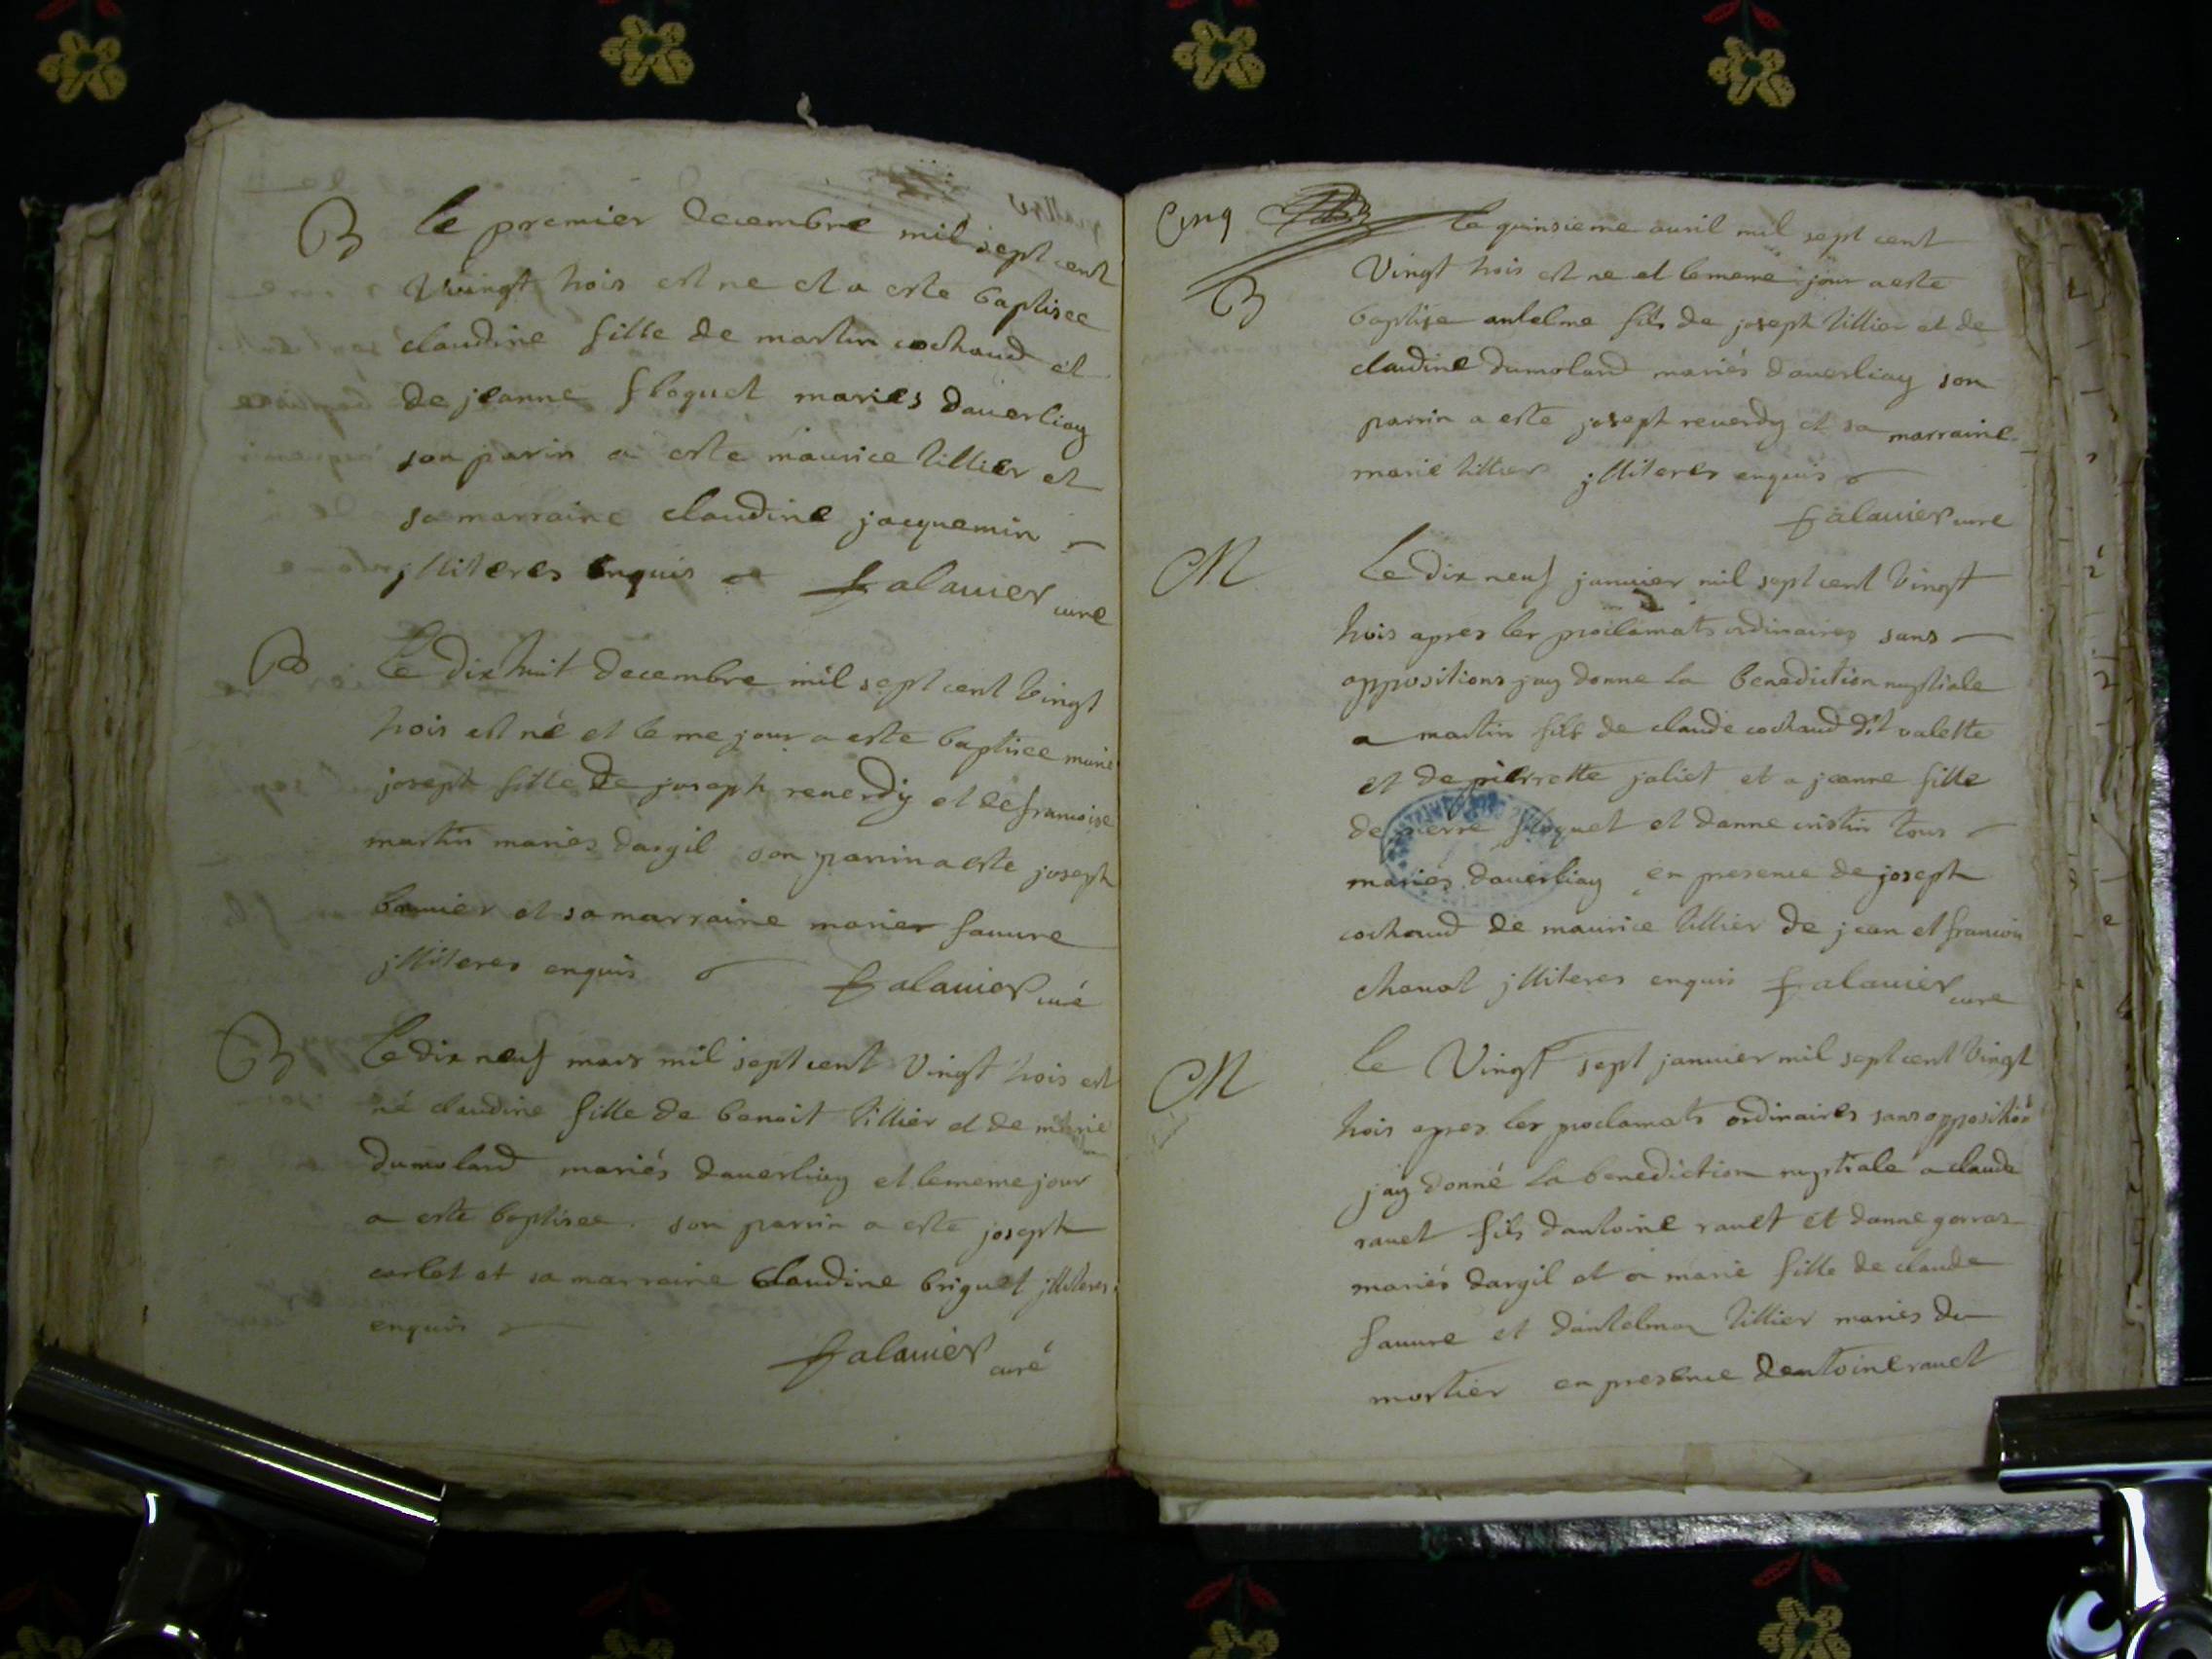 B Le premier decembre mil sept cent
Vingt trois est ne et a este baptisee
claudine fille de martin cochaud et
de jeanne floquet maries daverliay
son parin a este maurice tillier et
sa marraine claudine jacquemin
jlliteres enquis falavier cure
B Le dix huit decembre mil sept cent Vingt
trois est né et le me jour a este baptisee marie
joseph fille de joseph reverdy et de francoise
martin maries dargil son parrin a este joseph
et sa marraine marie fauvre
jlliteres enquis falavier curé
B Le dix neuf mars mil sept cent Vingt trois est
né claudine fille de benoit tillier et de marie
dumolard mariés daverliay et le meme jour
a este baptisee. son parrin a este joseph
carlet et sa marraine claudine briguet jlliteres
enquis
falavier curé
Cinq Le quinsieme avril mil sept cent
B Vingt trois est ne et le meme jour a este
baptise antelme fils de joseph tillier et de
claudine dumolard mariés daverliay son
parrin a este joseph reverdy et sa marraine
marie tillier jlliteres enquis
falavier cure
M Le dix neuf janvier mil sept cent Vingt
trois apres les proclamats ordinaires sans
oppositions jay donne la benediction nuptiale
a martin fils de claude cochaud dit valette
et de pierrette joliet et a jeanne fille
de pierre floquet et danne cristin tous
mariés daverliay en presence de joseph
cochaud de maurice tillier de jean et francois
chavat jlliteres enquis falavier cure
M Le Vingt sept janvier mil sept cent Vingt
trois apres les proclamats ordinaires sans opposition
jay donné la benediction nuptiale a claude
ravet fils dantoine ravet et danne gorraz
mariés dargil et a marie fille de claude
fauvre et dantelma tillier maries du
mortier en presence dentoine ravet